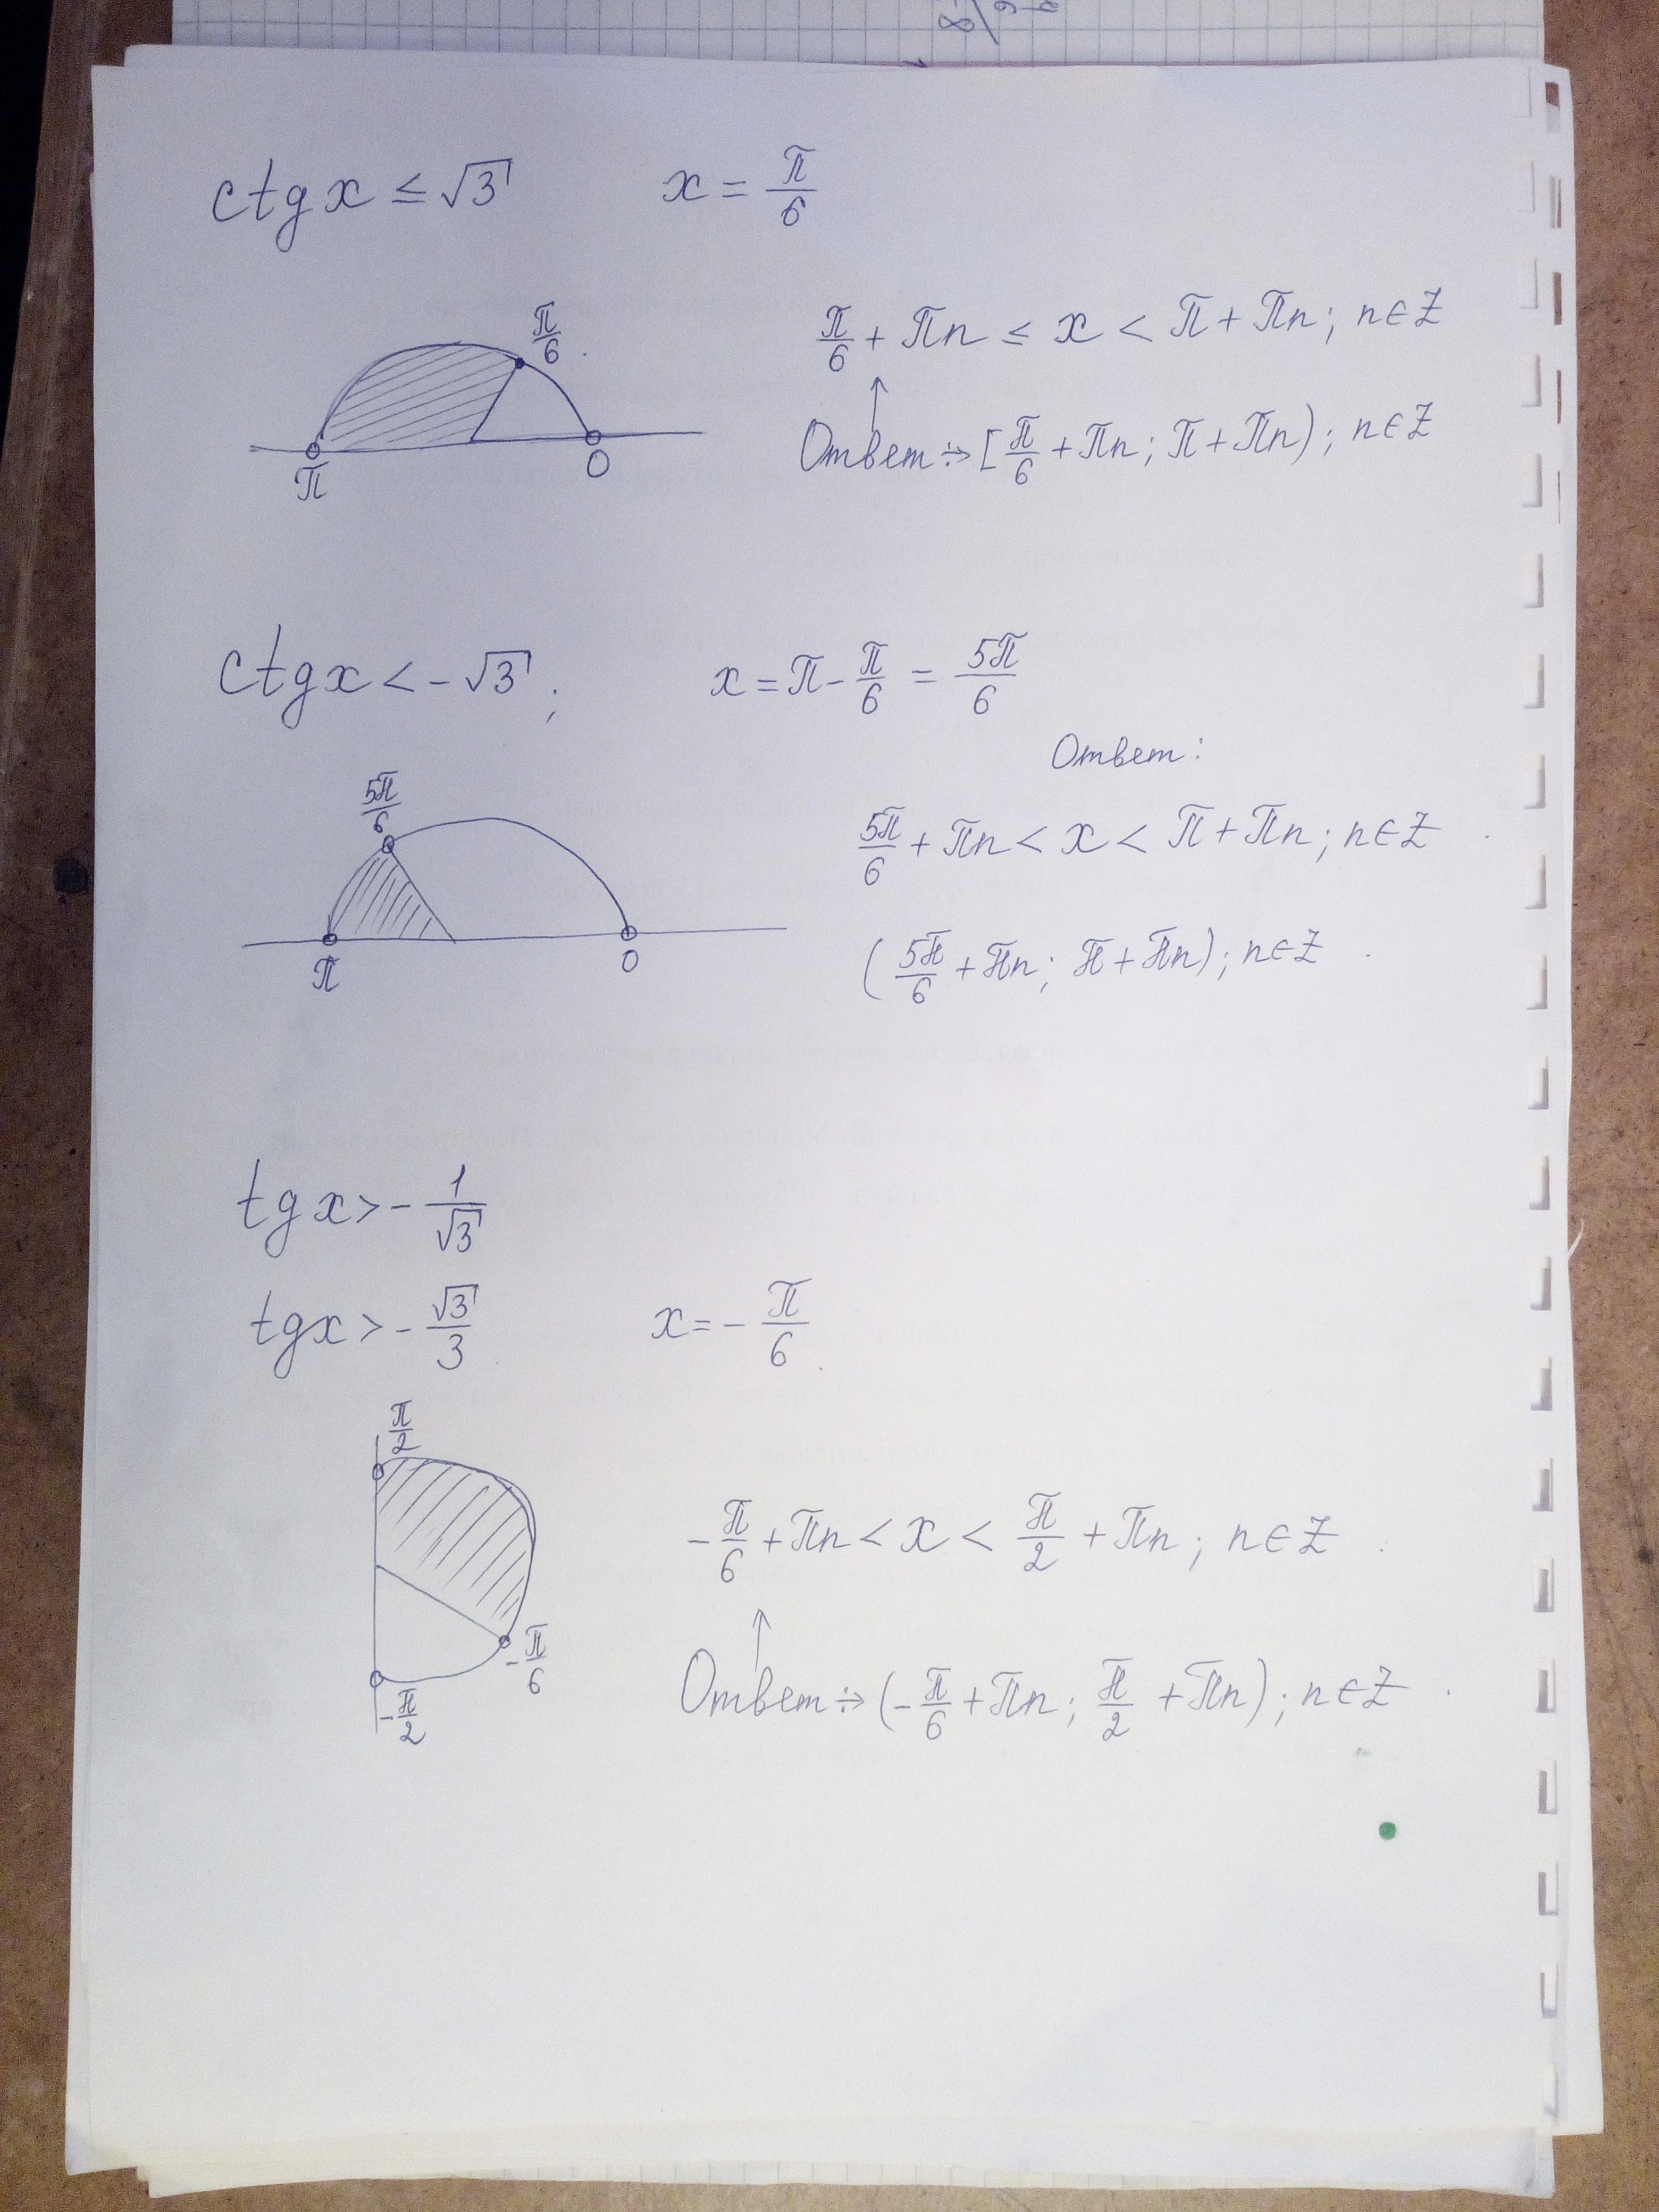 ctg x ≤ √3 x = π/6
π/6
π/6 + πn ≤ x < π + πn; n∈Z
Ответ: [π/6 + πn; π + πn); n∈Z
π 0
ctg x < -√3; x = π - π/6 = 5π/6
Ответ:
5π/6
5π/6 + πn < x < π + πn; n∈Z
π 0
(5π/6 + πn; π + πn); n∈Z
tg x > - 1/√3
tg x > - √3/3 x = - π/6
π/2
-π/6 + πn < x < π/2 + πn; n∈Z
-π/6
-π/2
Ответ: (-π/6 + πn; π/2 + πn); n∈Z